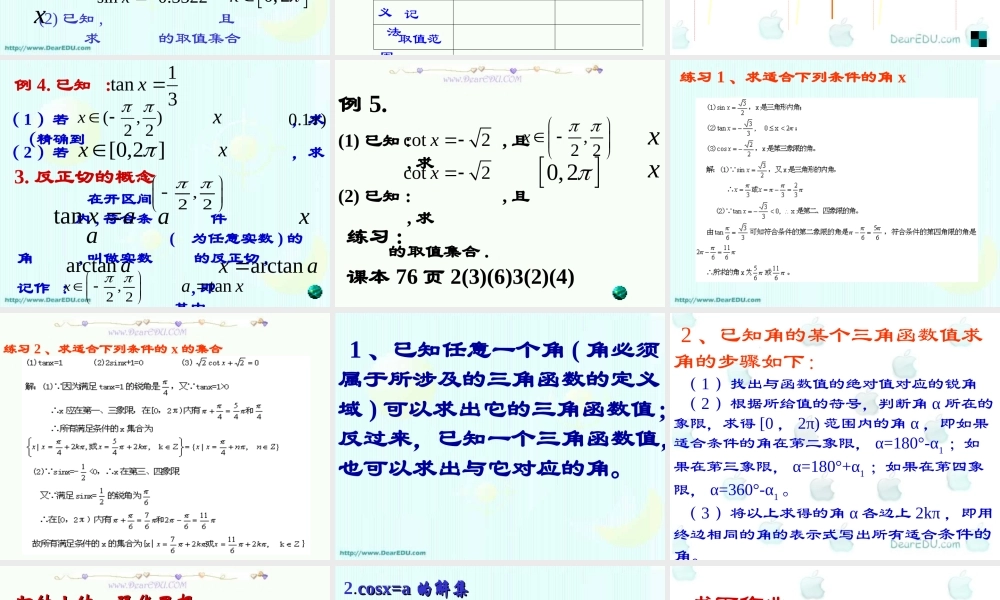 (2) 已知 , 且
x
求 的取值集合
http://www.DearEDU.com
义 记
法
取值范
DearEDU.com
例 4. 已知 : tan x = 1/3
( 1 ) 若 x∈(-π/2, π/2) x , 求
(精确到
( 2 ) 若 x∈[0,2π] x , 求
3. 反正切的概念
在开区间 (-π/2, π/2)
内 , 符合条 件
tan x = a a x
a
( 为任意实数 ) 的
角 , 叫做实数 的反正切 ,
arctan a x = arctan a
记作 : , 即
x∈(-π/2, π/2) a = tan x
http://www.DearEDU.com
www.DearEDU.COM
例 5.
(1) 已知 : cot x = -2 , 且 x∈(-π/2, π/2) x
, 求
cot x = -2 [0, 2π] x
(2) 已知 : , 且
, 求
练习 :
的取值集合 .
课本 76 页 2(3)(6)3(2)(4)
练习 1 、求适合下列条件的角 x
(1) sin x = √3/2 , x 是三角形内角;
(2) tan x = -√3/3 , 0≤x<2π;
(3) cos x = -√2/2 , x 是第三象限的角。
解: (1)∵sin x = √3/2 , 又 x 是三角形的内角,
∴x = π/3 或 x = π - π/3 = 2/3 π
(2)∵tan x = -√3/3 <0, ∴ x 是第二、四象限的角。
由 tan π/6 = √3/3 可知符合条件的第二象限的角是 π - π/6 = 5π/6 , 符合条件的第四象限的角是
2π - π/6 = 11/6 π
∴所求的角 x 为 5/6 π 或 11/6 π 。
http://www.DearEDU.com
www.DearEDU.COM
练习 2 、求适合下列条件的 x 的集合
(1)tanx=1 (2)2sinx+1=0 (3) √2 cot x + √2 = 0
解: (1)∵因为满足 tanx=1 的锐角是 π/4 , 又∵tanx=1>0
∴x 应在第一、三象限, 在[0, 2π)内有 π + π/4 = 5/4 π 和 π/4
∴所有满足条件的 x 集合为
{x | x = π/4 + 2kπ, 或 x = 5/4 π + 2kπ, k∈Z}={x | x = π/4 + nπ, n∈Z}
(2)∵sinx=-1/2 <0, ∴x 在第三、四象限
又∵满足 sinx=1/2 的锐角为 π/6
∴在[0, 2π)内有 π + π/6 = 7/6 π 和 2π - π/6 = 11/6 π
故所有满足条件的 x 的集合为{x| x = 7/6 π + 2kπ 或 x = 11/6 π + 2kπ, k∈Z}
1 、已知任意一个角 ( 角必须
属于所涉及的三角函数的定义
域 ) 可以求出它的三角函数值;
反过来，已知一个三角函数值,
也可以求出与它对应的角。
http://www.DearEDU.com
2 、已知角的某个三角函数值求
角的步骤如下 :
( 1 ) 找出与函数值的绝对值对应的锐角
( 2 ) 根据所给值的符号，判断角 α 所在的
象限，求得 [0 ， 2π) 范围内的角 α ，即如果
适合条件的角在第二象限， α=180°-α1 ；如
果在第三象限， α=180°+α1 ；如果在第四象
限， α=360°-α1 。
( 3 ) 将以上求得的角 α 各边上 2kπ ，即用
终边相同的角的表示式写出所有适合条件的
角。
DearEDU.com
www.DearEDU.COM
2.cosx=a 的解集